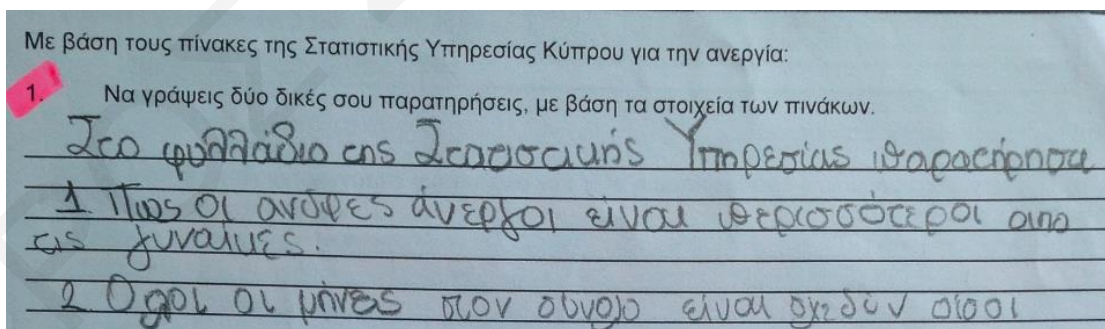 Με βάση τους πίνακες της Στατιστικής Υπηρεσίας Κύπρου για την ανεργία:
1. Να γράψεις δύο δικές σου παρατηρήσεις, με βάση τα στοιχεία των πινάκων.
Στο φυλλάδιο της Στατιστικής Υπηρεσίας παρατήρησα
1 Πως οι άνδρες άνεργοι είναι περισσότεροι απο
τις γυναίκες.
2 Ολοι οι μήνες στον σύνολο είναι σχεδών